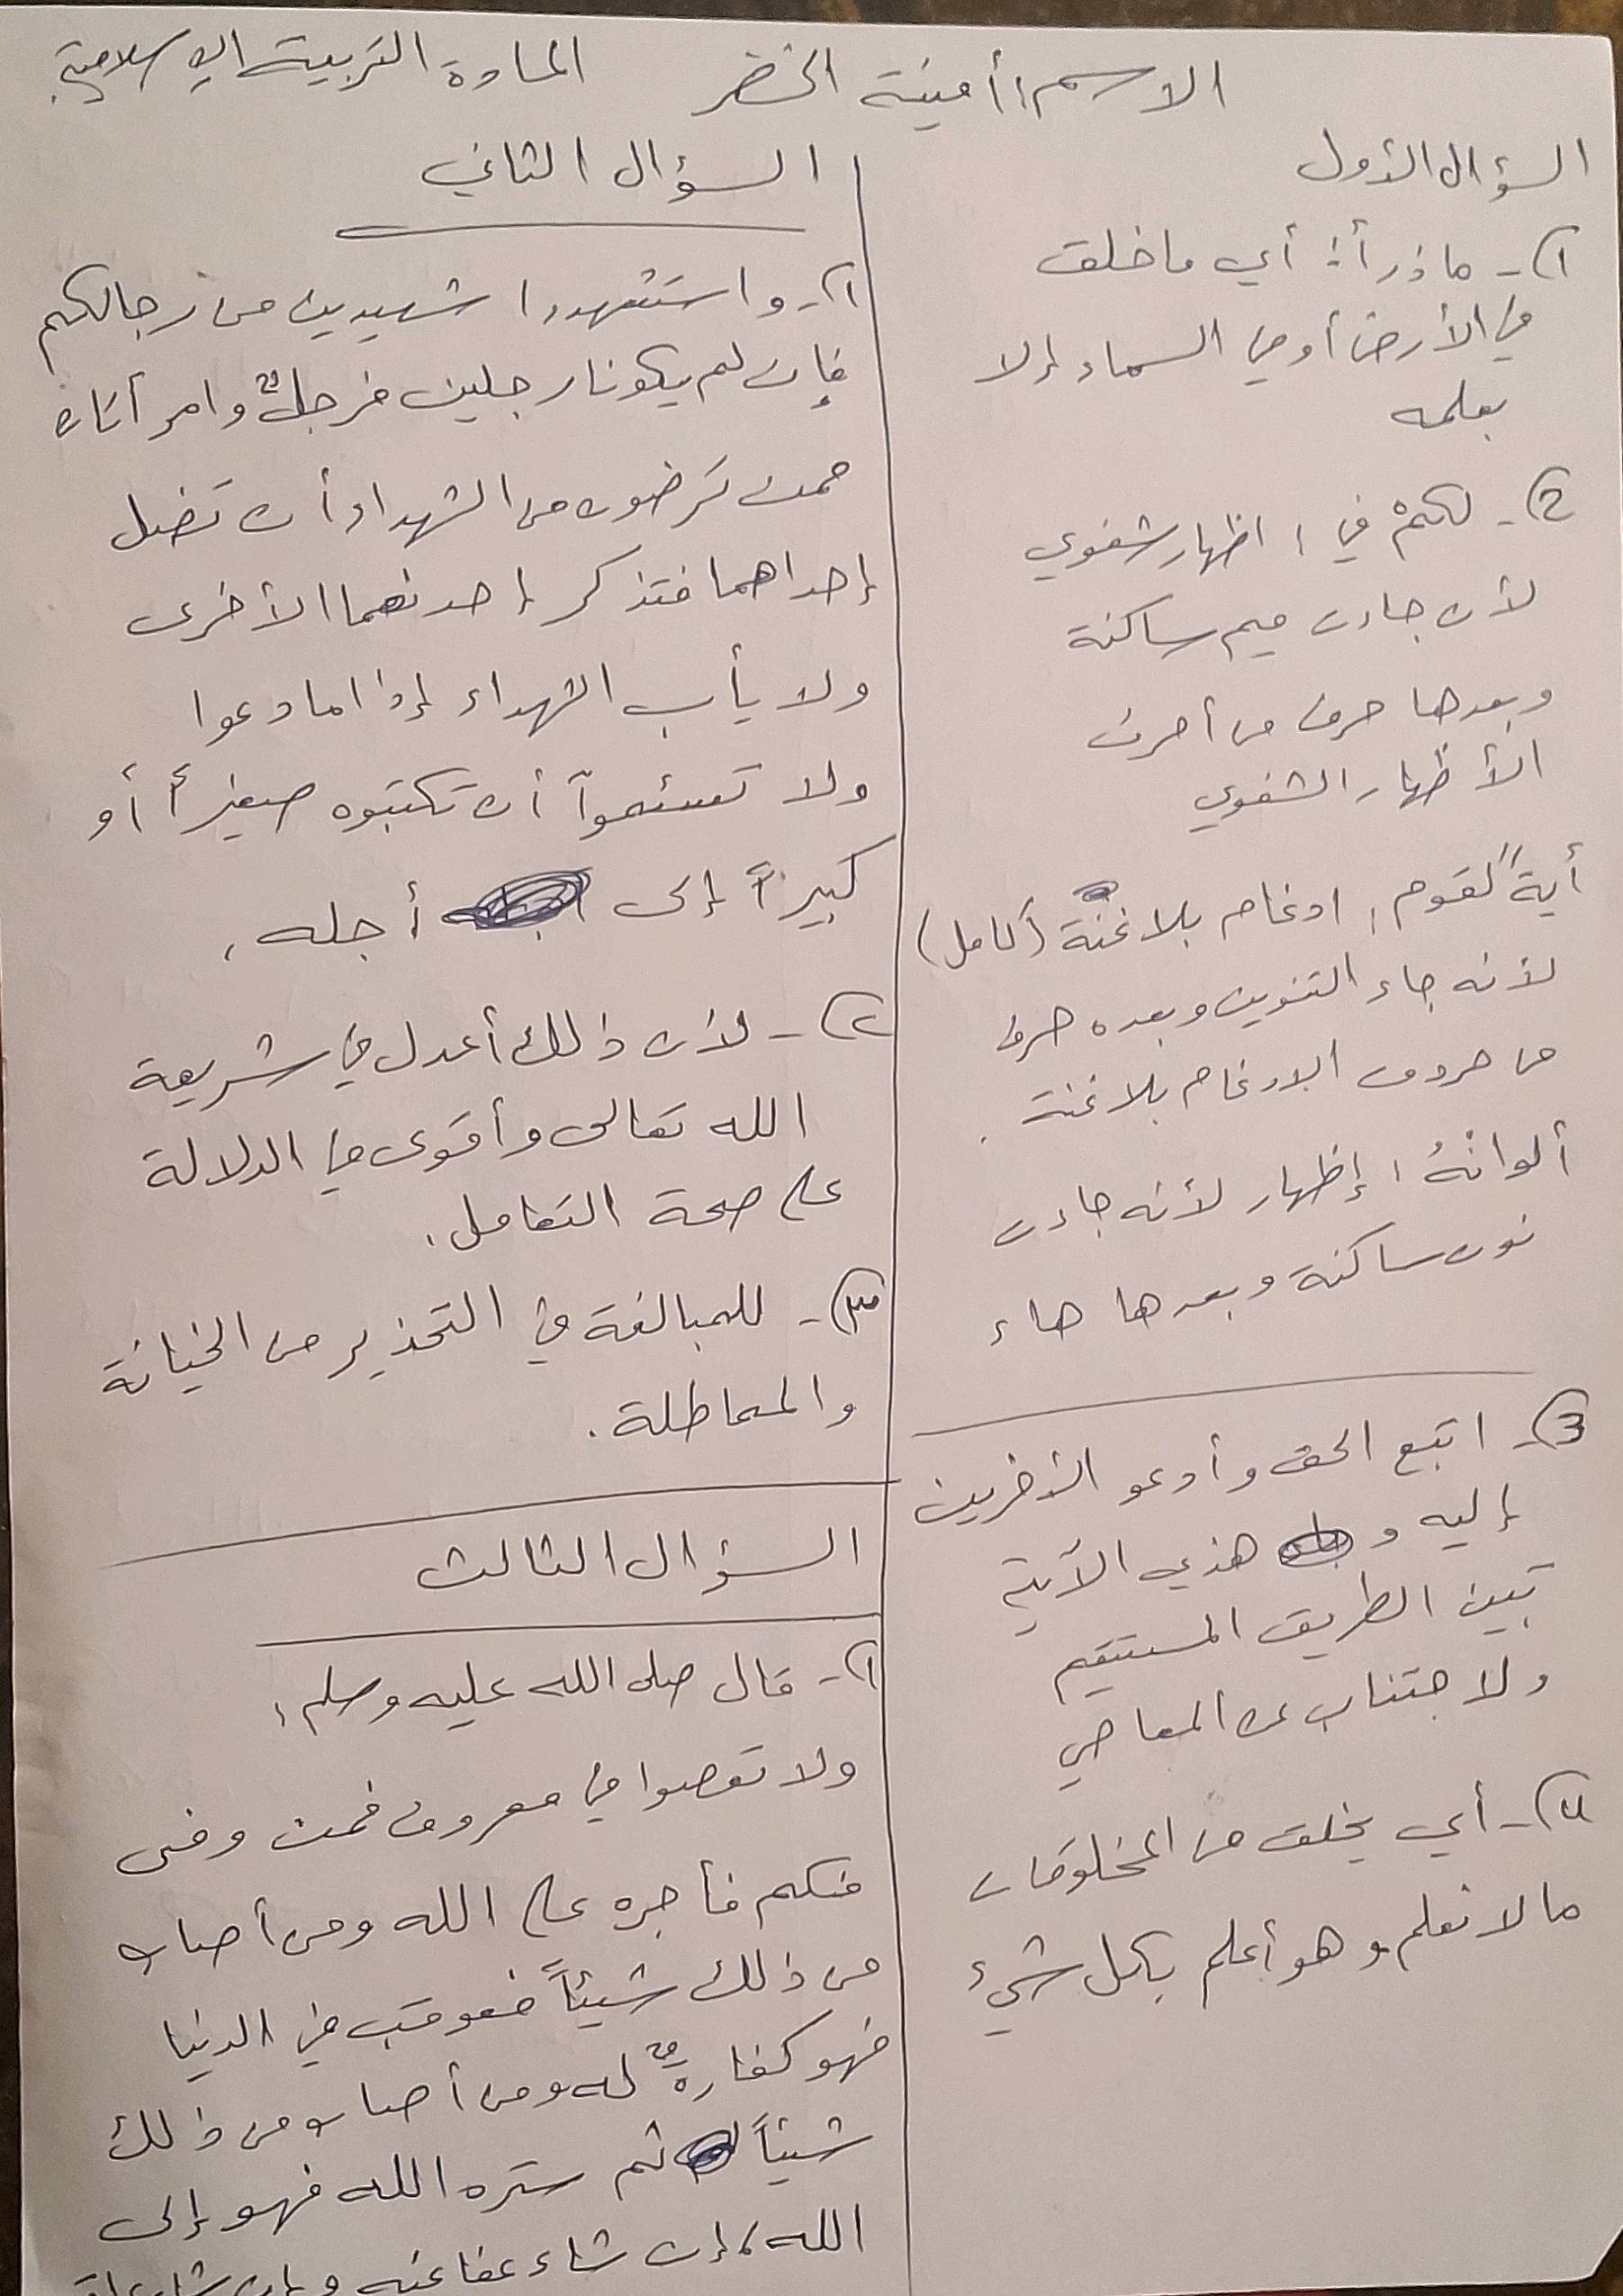 الاسم: أمينة الخضر المادة التربية الإسلامية
السؤال الأول
١- ما ذرأ: أي ما خلق
في الأرض أو في السماء إلا
بعلمه
2- لكمْ في: اظهار شفوي
لأن جاءت ميم ساكنة
وبعدها حرف من أحرف
الأظهار الشفوي
أيةً لقوم: ادغام بلا غنة (كامل)
لأنه جاء التنوين وبعده حرف
من حروف الادغام بلا غنة.
ألوانْهُ: إظهار لأنه جاءت
نون ساكنة وبعدها هاء
3- اتبع الحق وأدعو الأخرين
إليه و هذي الآية
تبين الطريق المستقيم
ولا جتناب عن المعاصي
٤- أي يخلق من المخلوقات
ما لا نعلم وهو أعلم بكل شيء
السؤال الثاني
١- واستشهدوا شهيدين من رجالكم
فإن لم يكونا رجلين فرجلٌ وامرأتان
ممن ترضون من الشهداء أن تضل
إحداهما فتذكر إحدهما الأخرى
ولا يأب الشهداء إذا ما دعوا
ولا تسئموآ أن تكتبوه صغيراً أو
كبيراً إلى أجله.
٢- لأن ذلك أعدل في شريعة
الله تعالى وأقوى في الدلالة
على صحة التعامل.
٣- للمبالغة في التحذير من الخيانة
والمماطلة.
السؤال الثالث
١- قال صلى الله عليه وسلم:
ولا تعصوا في معروف فمن وفى
منكم فأجره على الله ومن أصاب
من ذلك شيئاً فعوقب في الدنيا
فهو كفارةٌ له ومن أصاب من ذلك
شيئاً ثم ستره الله فهو إلى
الله، إن شاء عفا عنه وإن شاء